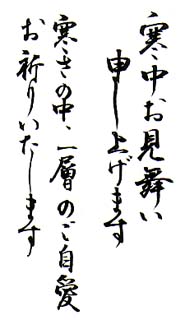 寒中お見舞い
申し上げます
寒さの中、一層のご自愛
お祈りいたします